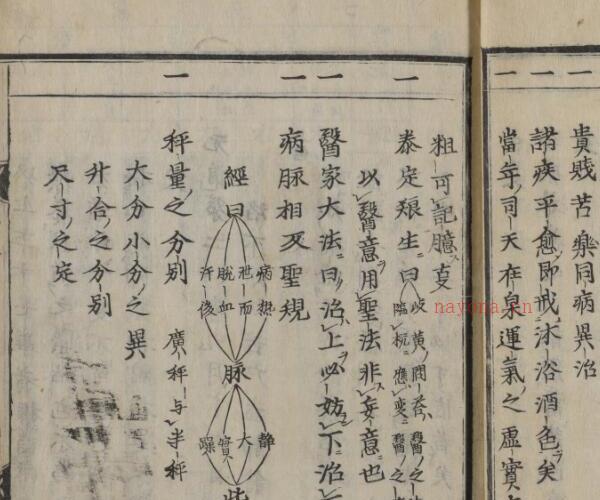 一
貴賤苦樂同病異治
一
諸疾平愈即戒沐浴酒色矣
一
當年司天在泉運氣之虛實
粗可記臆支
一
泰定 生曰
岐黄問荅
臨機應變醫之
以醫意用聖法非妄意也
一
醫家大法曰治上必妨下治
一
病脉相反聖規
經曰
病热
泄而
脱血
汗後
脉
静
大
實
躁
此
一
秤量之分别
廣秤与半秤
大分小分之異
升合之分别
尺寸之定
nayona.cn